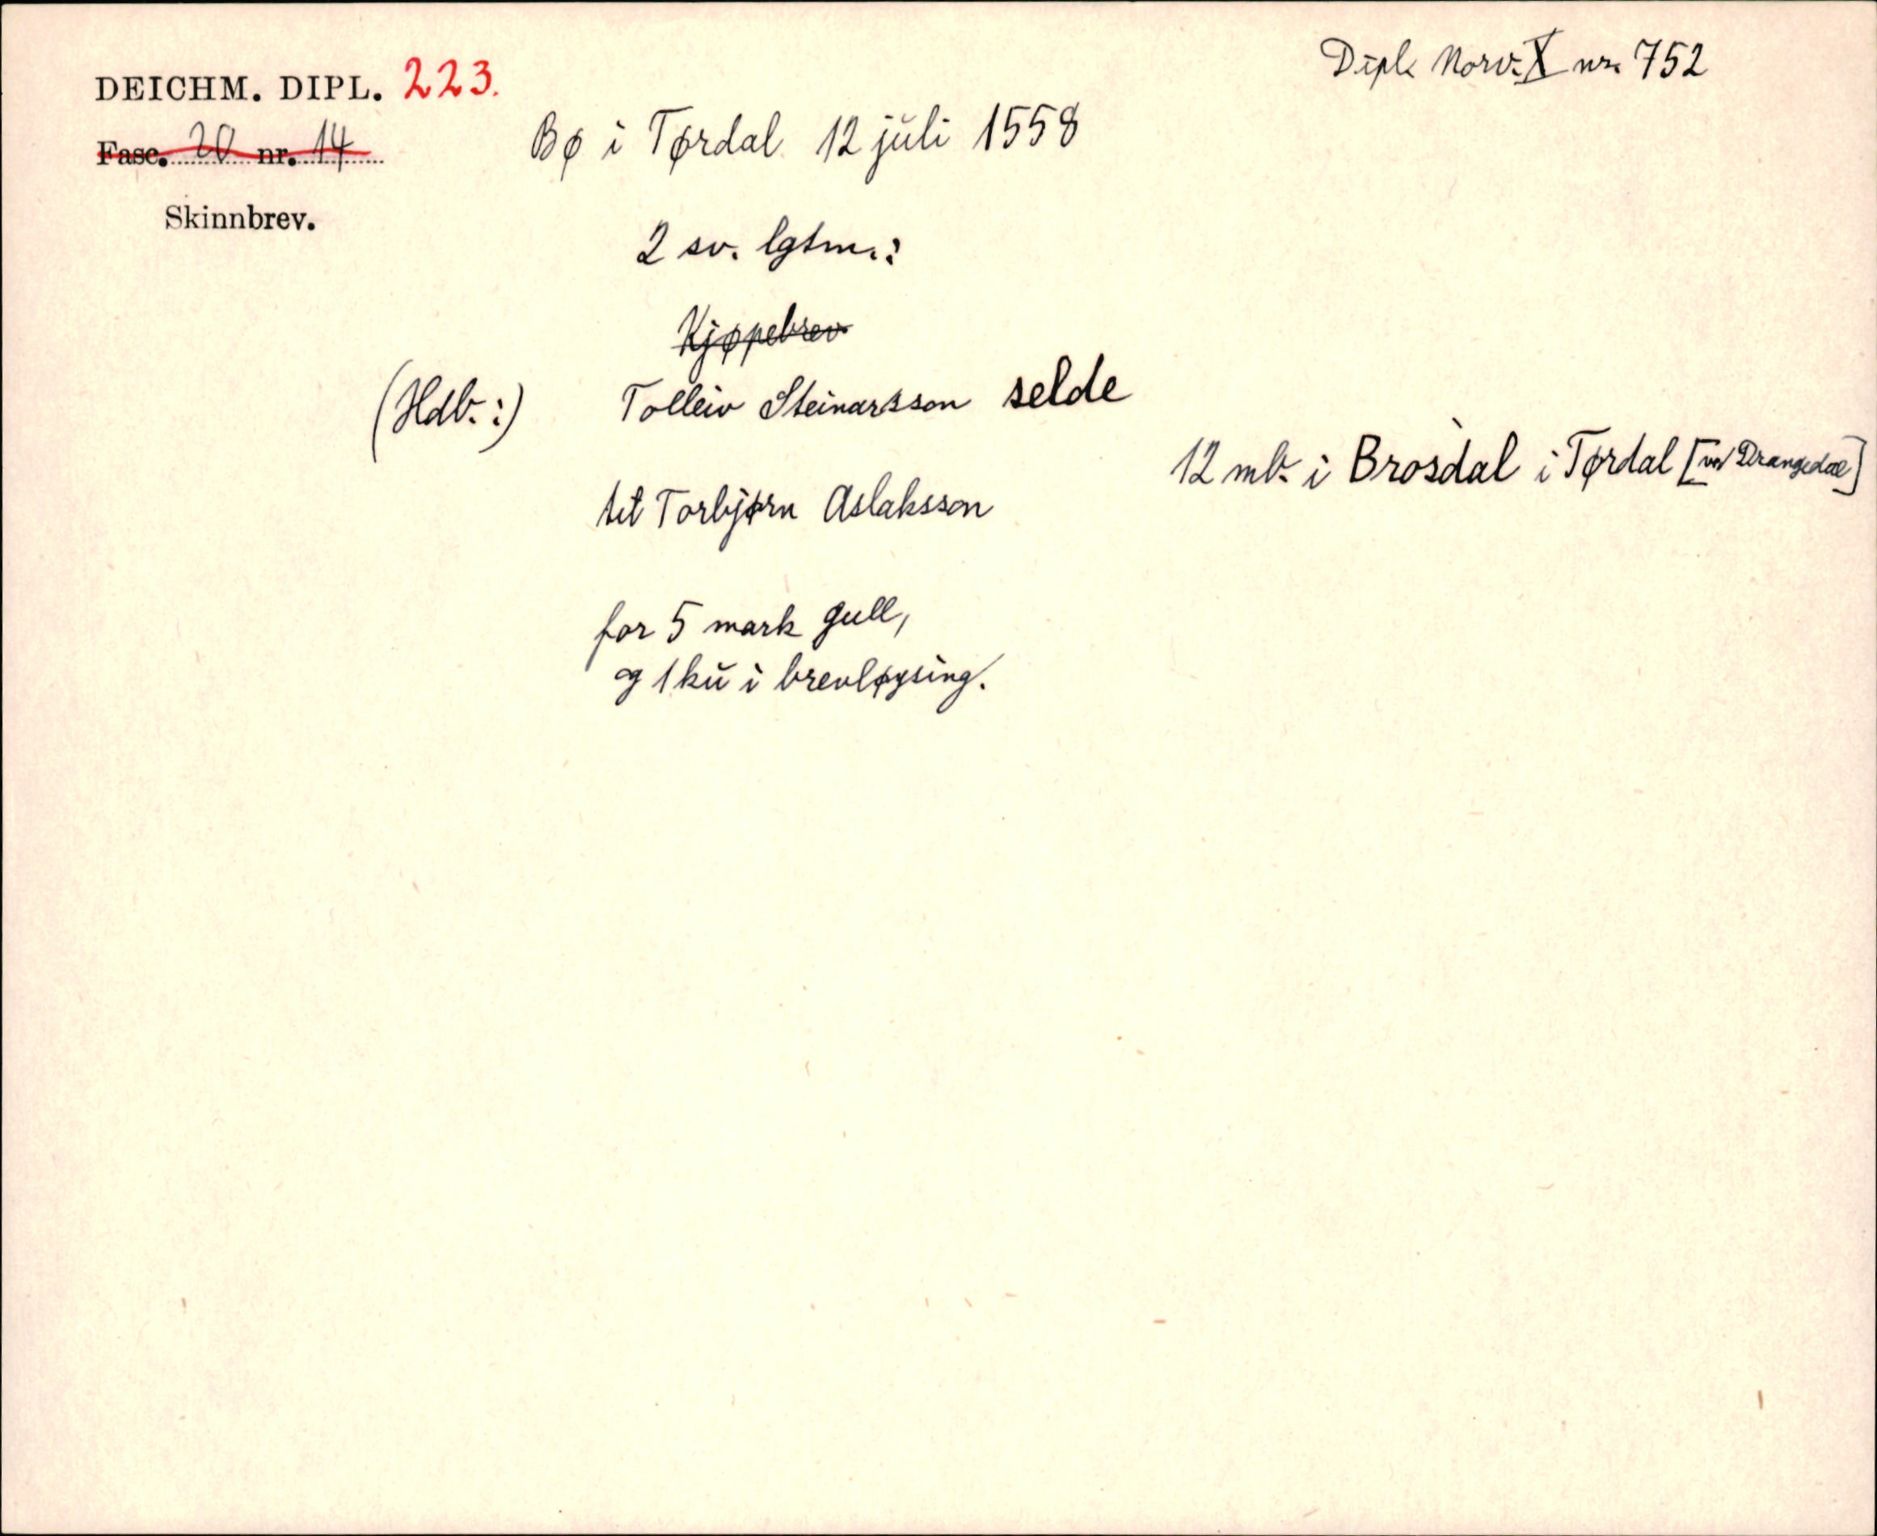 DEICHM. DIPL. 223.
Dipl. Norv. X nr. 752
Fasc. 20 nr. 14
Bø i Tørdal 12 juli 1558
Skinnbrev.
2 sv. lgtm.:
Kjøpebrev
(Hdb.:) Tolleiv Steinarsson selde
12 mb. i Brosdal i Tørdal [ Drangedal]
til Torbjørn Aslaksson
for 5 mark gull,
og 1 ku i brevløysing.